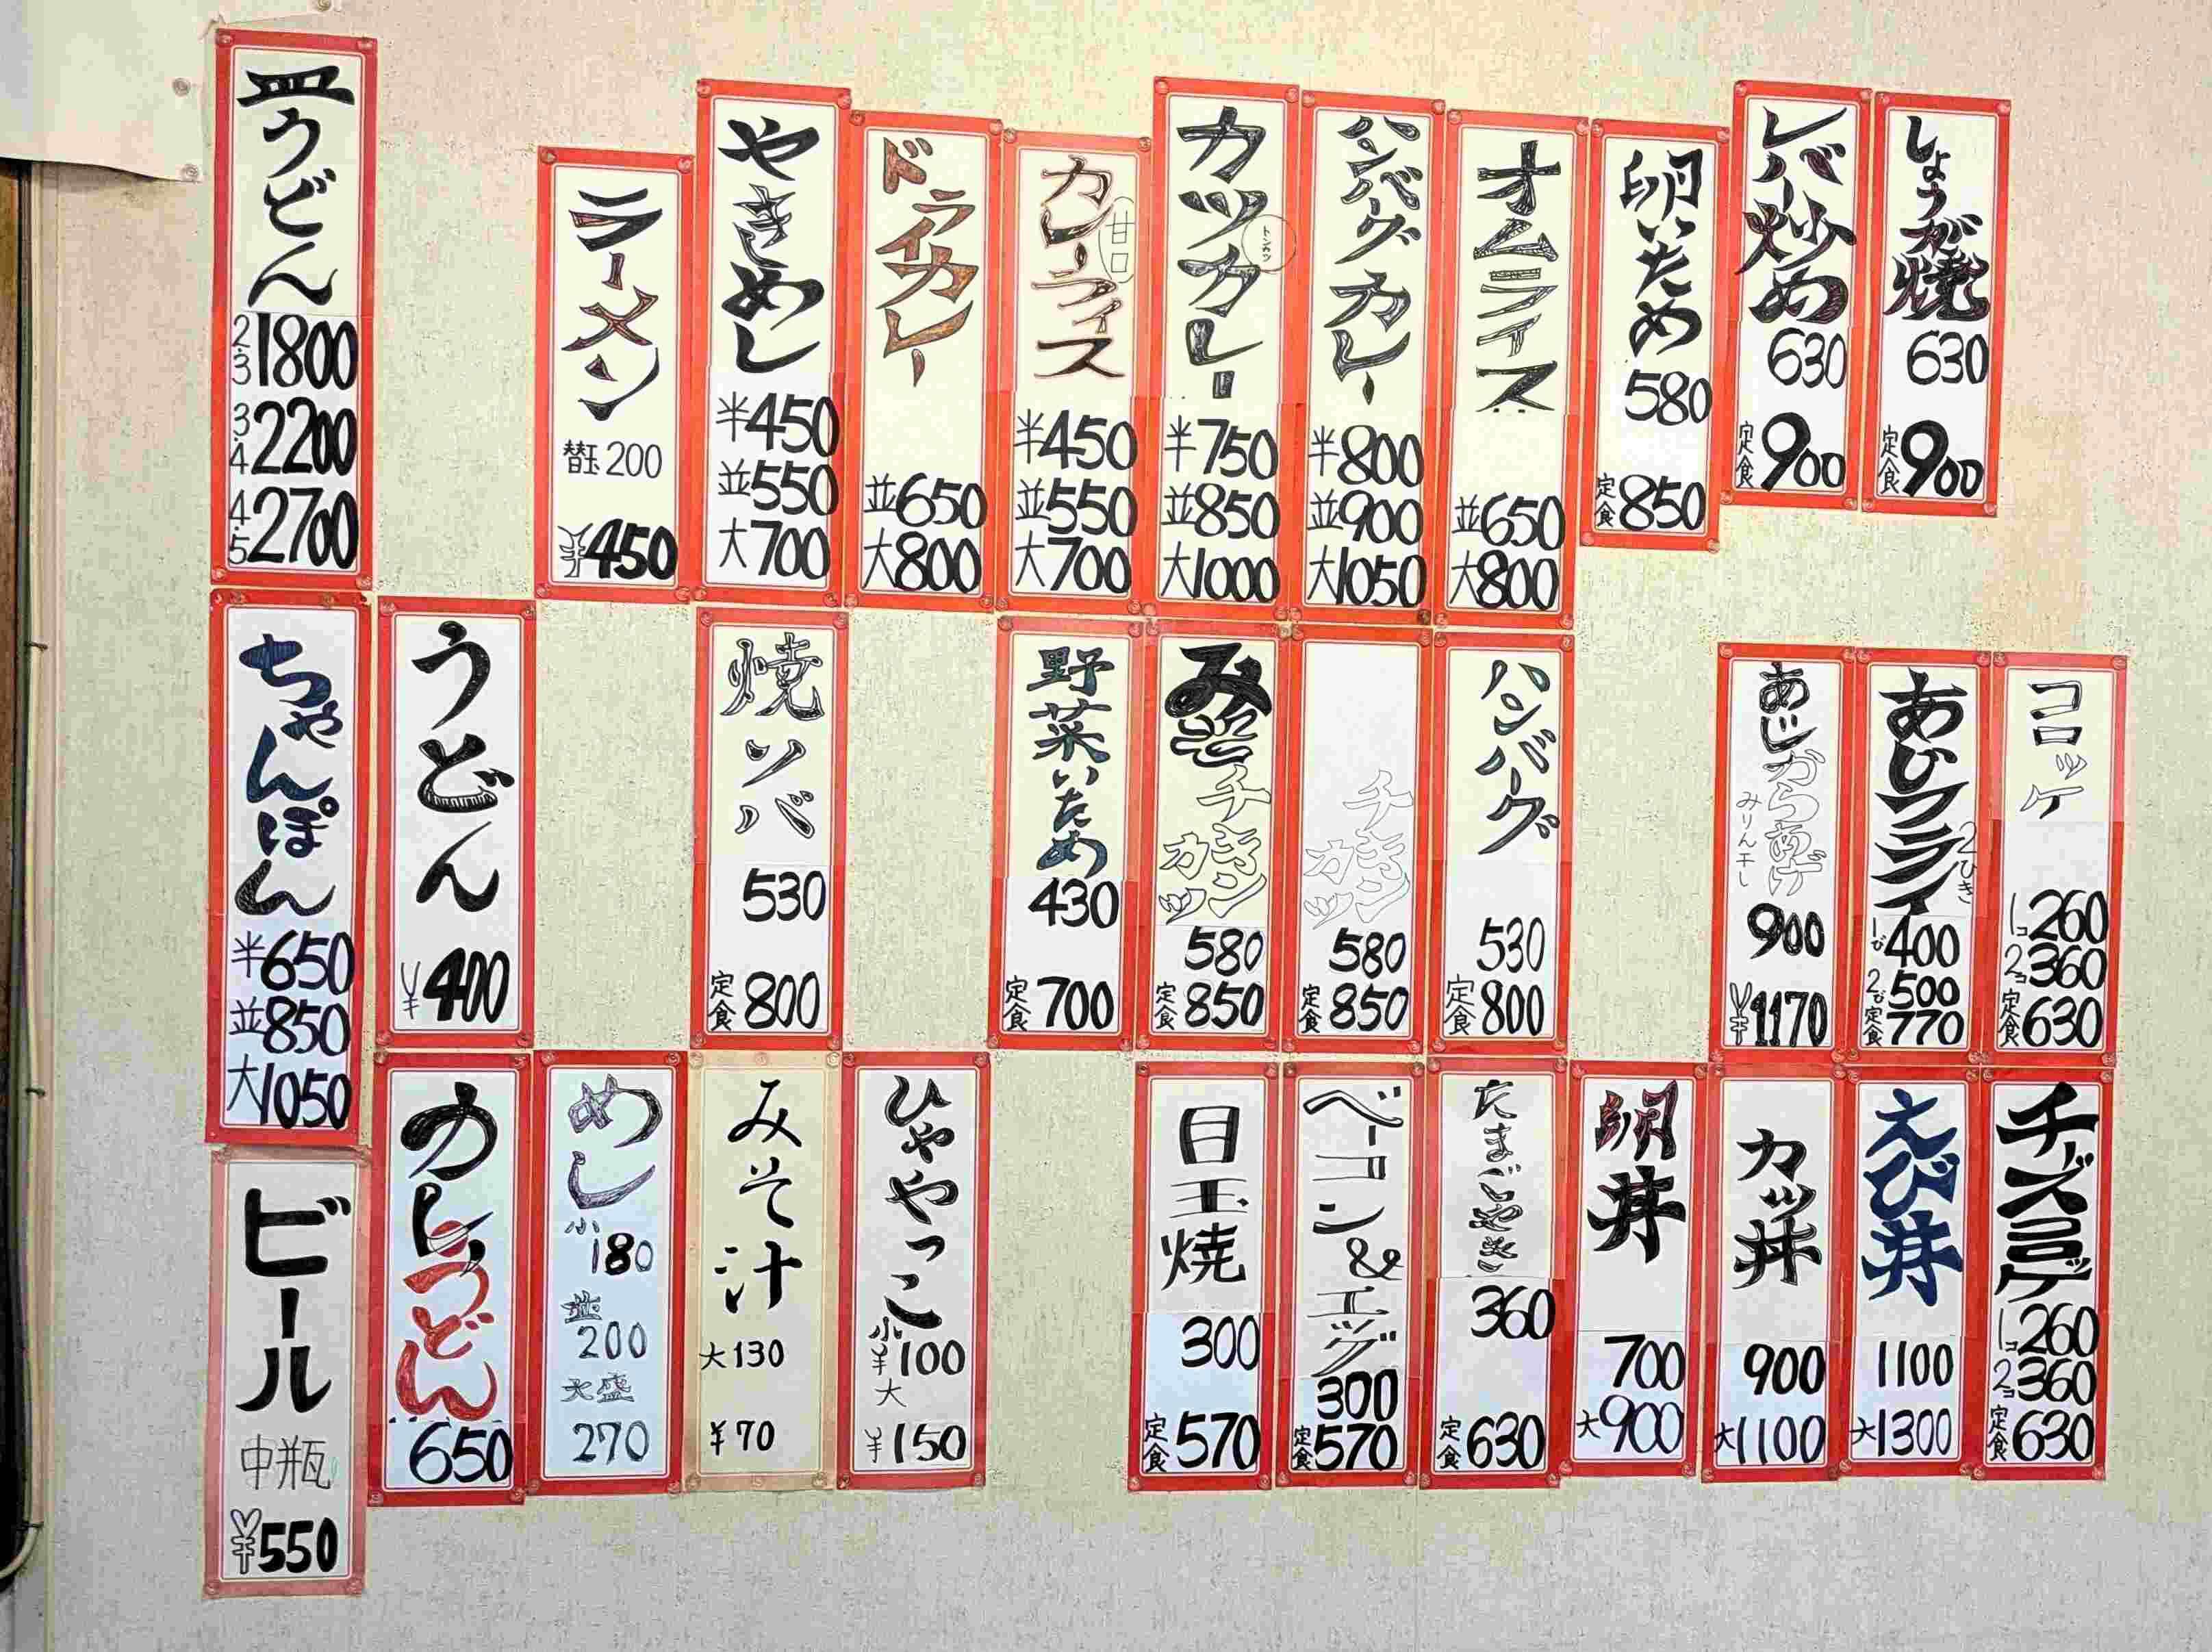 しょうが焼
630
定食900
レバー炒め
630
定食900
卵いため
580
定食850
オムライス
並650
大800
ハンバーグカレー
半800
並900
大1050
カツカレー
トンカツ
半750
並850
大1000
カレーライス
甘口
半450
並550
大700
ドライカレー
並650
大800
やきめし
半450
並550
大700
ラーメン
替玉200
¥450
皿うどん
2・3 1800
3・4 2200
4・5 2700
コロッケ
1コ260
2コ360
定食630
あじフライ
2ひき
1ぴ400
2ひ500
定食770
あじからあげ
みりん干し
900
¥1170
ハンバーグ
530
定食800
チキンカツ
580
定食850
みそチキンカツ
580
定食850
野菜いため
430
定食700
焼ソバ
530
定食800
うどん
¥400
ちゃんぽん
半650
並850
大1050
チーズコロッケ
1コ260
2コ360
定食630
えび丼
1100
大1300
カツ丼
900
大1100
卵丼
700
大900
たまごやき
360
定食630
ベーコン&エッグ
300
定食570
目玉焼
300
定食570
ひややっこ
小¥100
大
¥150
みそ汁
大130
¥70
めし
小180
並200
大盛270
カレーうどん
650
ビール
中瓶
¥550